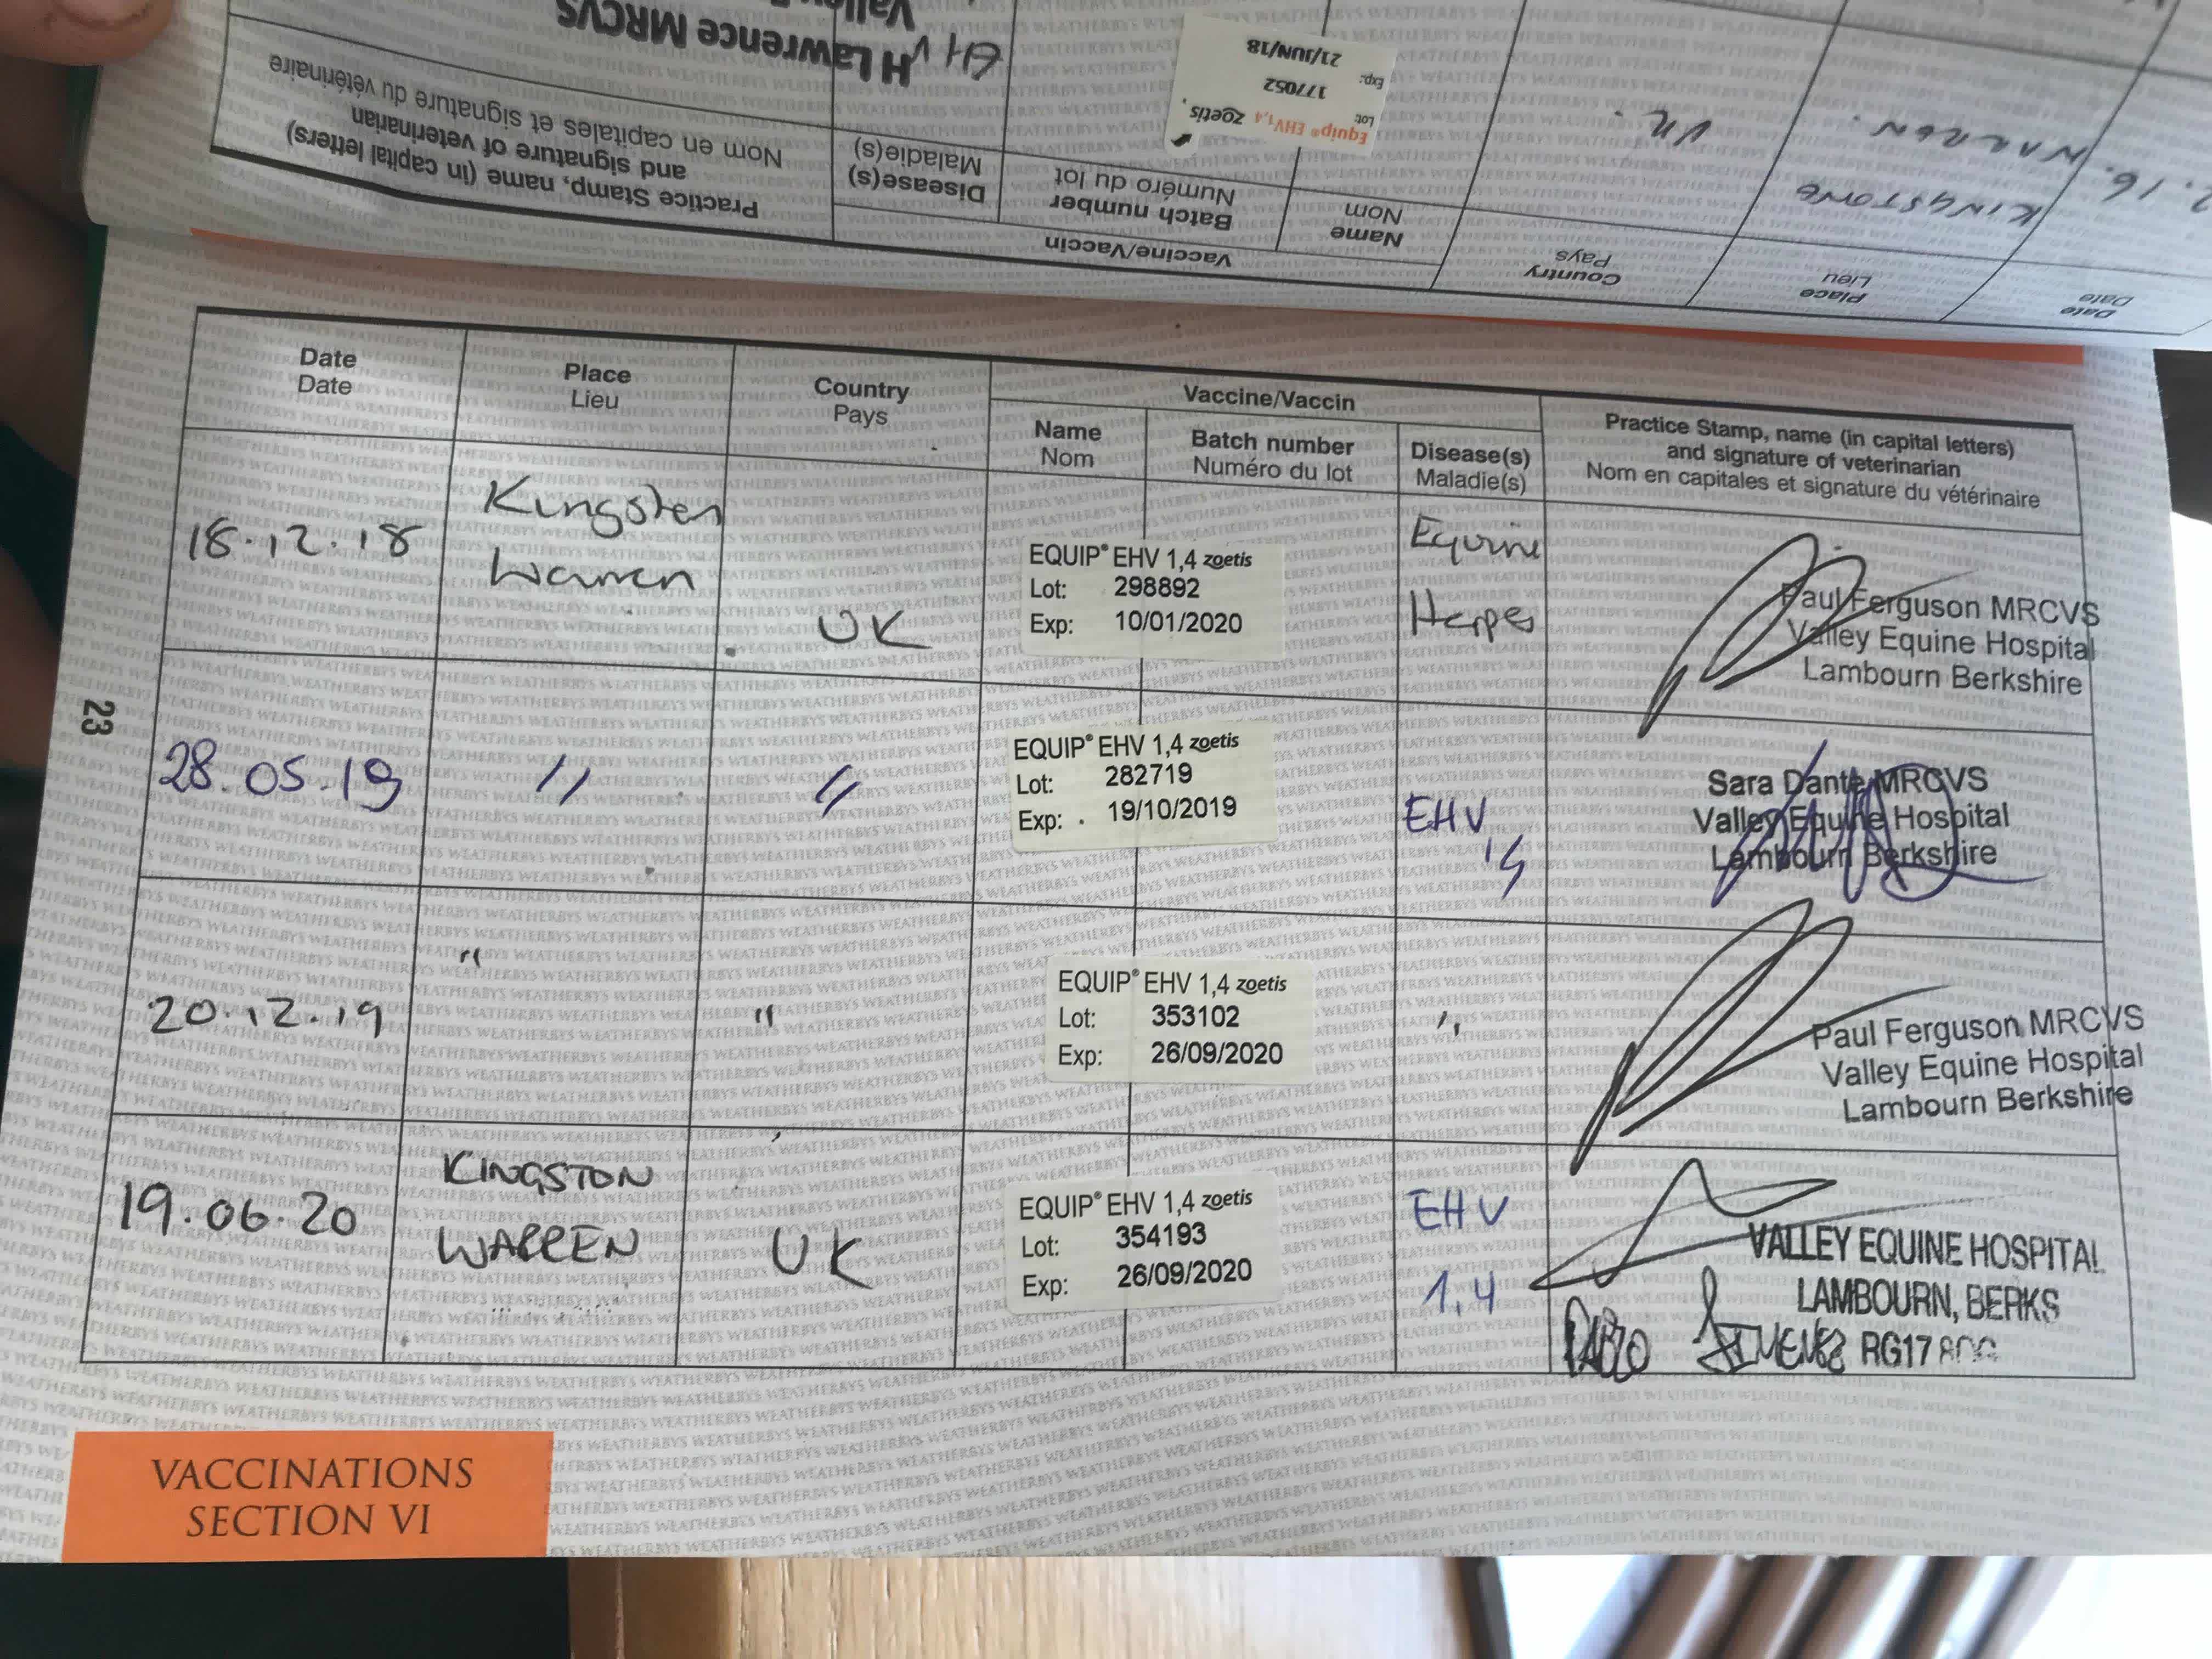 H Lawrence MRCVS
Valley
EHV
Equip® EHV1,4 zoetis
Lot: 177052
Exp: 21/JUN/18
KINGSTONE
WARREN.
UK.
. 16.
Practice Stamp, name (in capital letters)
and signature of veterinarian
Nom en capitales et signature du vétérinaire
Disease(s)
Maladie(s)
Batch number
Numéro du lot
Name
Nom
Vaccine/Vaccin
Country
Pays
Place
Lieu
Date
Date
Date
Date
Place
Lieu
Country
Pays
Vaccine/Vaccin
Name
Nom
Batch number
Numéro du lot
Disease(s)
Maladie(s)
Practice Stamp, name (in capital letters)
and signature of veterinarian
Nom en capitales et signature du vétérinaire
18.12.18
Kingston
Warren
UK
EQUIP® EHV 1,4 zoetis
Lot: 298892
Exp: 10/01/2020
Equine
Herpes
Paul Ferguson MRCVS
Valley Equine Hospital
Lambourn Berkshire
28.05.19
"
"
EQUIP® EHV 1,4 zoetis
Lot: 282719
Exp: 19/10/2019
EHV
1,4
Sara Dante MRCVS
Valley Equine Hospital
Lambourn Berkshire
20.12.19
"
"
EQUIP® EHV 1,4 zoetis
Lot: 353102
Exp: 26/09/2020
"
Paul Ferguson MRCVS
Valley Equine Hospital
Lambourn Berkshire
19.06.20
KINGSTON
WARREN
UK
EQUIP® EHV 1,4 zoetis
Lot: 354193
Exp: 26/09/2020
EHV
1,4
VALLEY EQUINE HOSPITAL
LAMBOURN, BERKS
RG17
23
VACCINATIONS
SECTION VI
WEATHERBYS